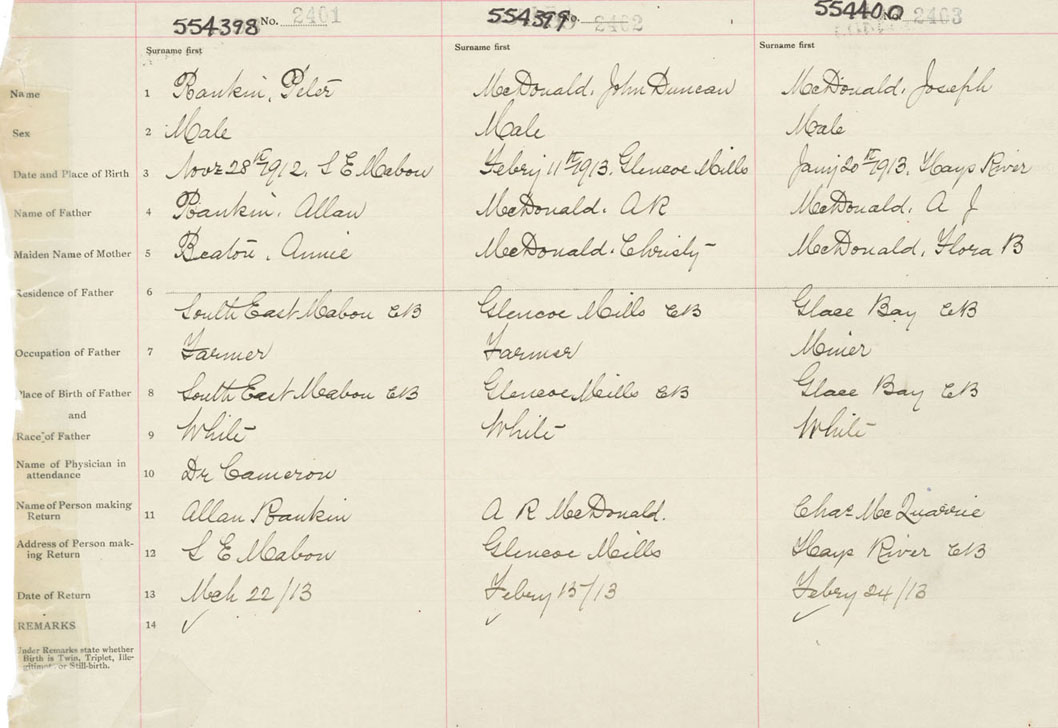 554398 No. 2401 554399 No. 2402 554400 No. 2403
Surname first Surname first Surname first
Name 1 Rankin, Peter McDonald, John Duncan McDonald, Joseph
Sex 2 Male Male Male
Date and Place of Birth 3 Novr 28th 1912. S E Mabou Febry 11th 1913. Glencoe Mills Jany 20th 1913. Hays River
Name of Father 4 Rankin, Allan McDonald, A R McDonald, A J
Maiden Name of Mother 5 Beaton, Annie McDonald, Christy McDonald, Flora B
Residence of Father 6
South East Mabou CB Glencoe Mills CB Glace Bay CB
Occupation of Father 7 Farmer Farmer Miner
Place of Birth of Father 8 South East Mabou CB Glencoe Mills CB Glace Bay CB
and
Race of Father 9 White White White
Name of Physician in
attendance 10 Dr Cameron
Name of Person making
Return 11 Allan Rankin A R McDonald. Chas McQuarrie
Address of Person mak-
ing Return 12 S E Mabou Glencoe Mills Hays River CB
Date of Return 13 Mch 22/13 Febry 15/13 Febry 24/13
REMARKS 14 ✓ ✓
Under Remarks state whether
Birth is Twin, Triplet, Ille-
gitimate or Still-birth.